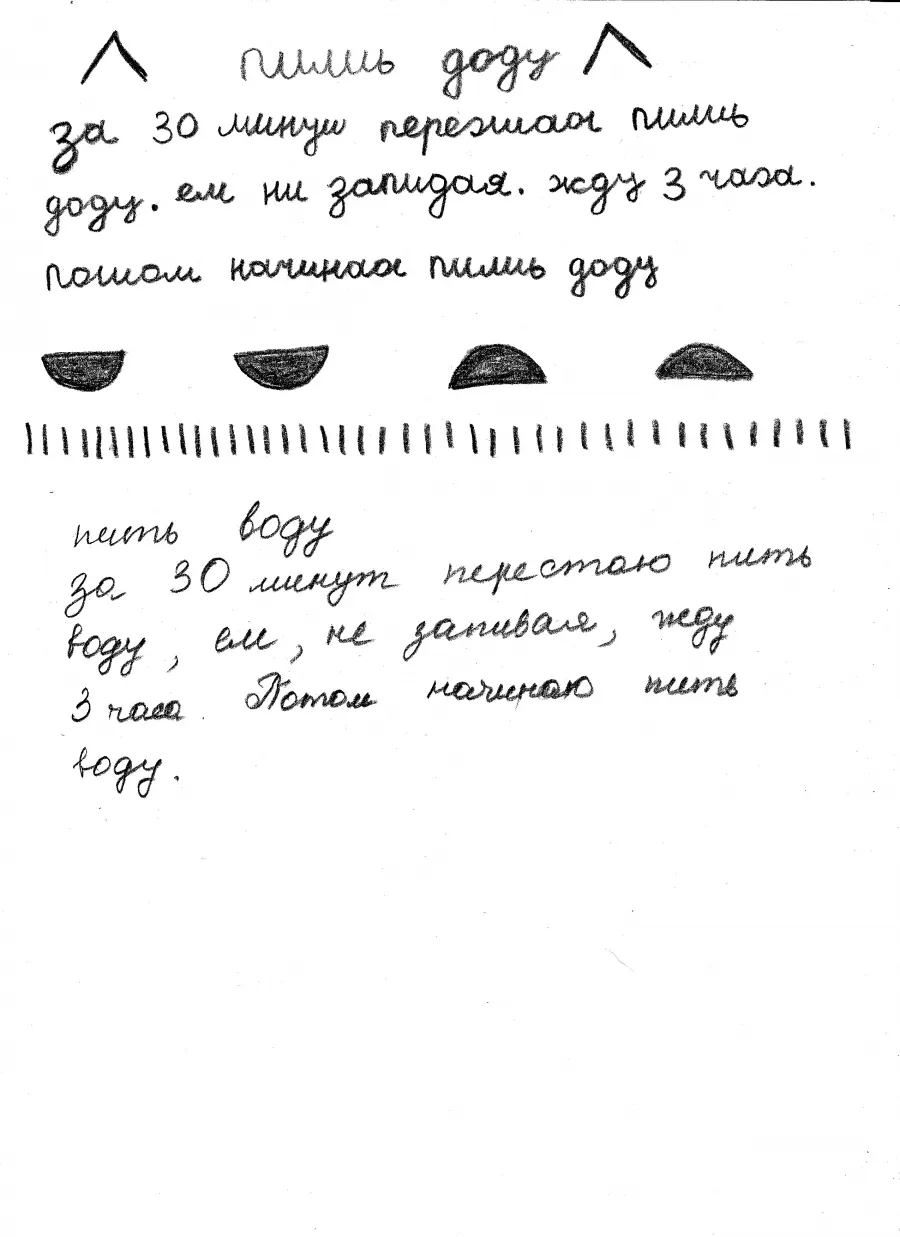 пишиь доду
за 30 минуш перезшаоı пишиь
доду. ем ни запидая. жду 3 чаза.
пошом начинаоı пишиь доду
пить воду
за 30 минут перестаю пить
воду, ем, не запивая, жду
3 часа. Потом начинаю пить
воду.